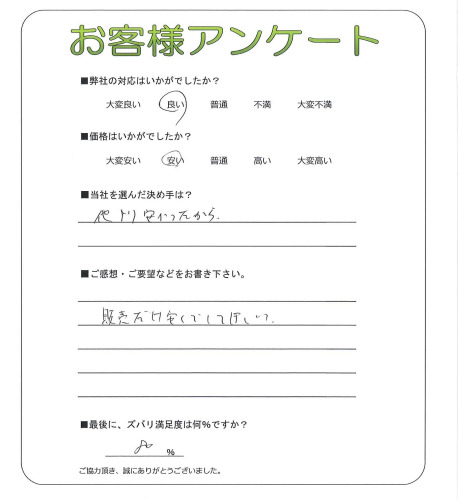 お客様アンケート
■弊社の対応はいかがでしたか?
大変良い 良い 普通 不満 大変不満
■価格はいかがでしたか?
大変安い 安い 普通 高い 大変高い
■当社を選んだ決め手は?
他より安かったから.
■ご感想・ご要望などをお書き下さい。
販売だけ安くしてほしい.
■最後に、ズバリ満足度は何%ですか?
%
ご協力頂き、誠にありがとうございました。